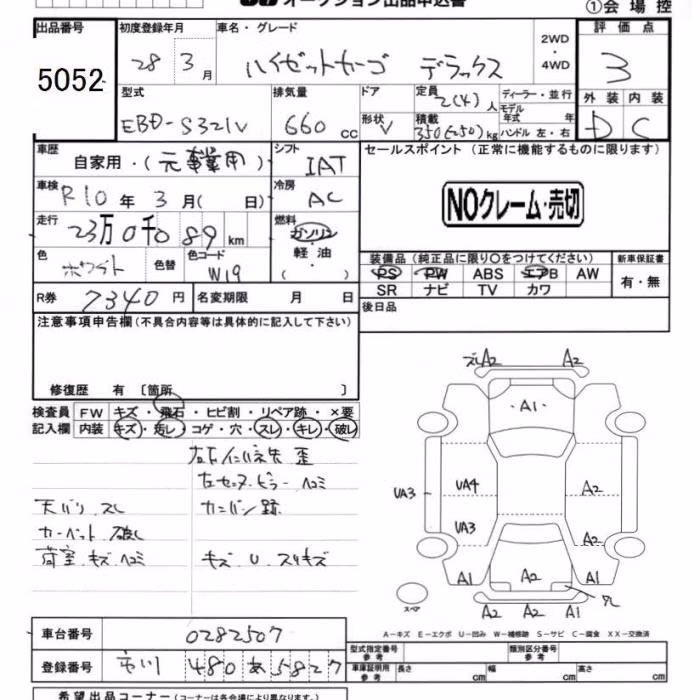 オークション出品申込書
①会場控
出品番号 初度登録年月 車名・グレード 評価点
5052 28年 3月 ハイゼットカーゴ デラックス 2WD・4WD 3
型式 排気量 ドア 定員 2(4)人 ディーラー・並行 外装 内装
EBD-S321V 660cc 形状 V 積載 350(250)kg モデル年式 年式 ハンドル 左・右 D C
車歴 自家用・(元事業用) シフト IAT セールスポイント (正常に機能するものに限ります)
車検 R10年 3月( 日) 冷房 AC NOクレーム・売切
走行 23万0千089km 燃料 ガソリン・軽油・( )
色 ホワイト 色替 色コード W19 装備品 (純正品に限り〇をつけてください) 新車保証書
PS PW ABS エアB AW 有・無
SR ナビ TV カワ
R券 7340円 名変期限 月 日 後日品
注意事項申告欄(不具合内容等は具体的に記入して下さい)
修復歴 有 〔箇所 〕
検査員 FW キズ・飛石・ヒビ割・リペア跡・×要
記入欄 内装 キズ・汚レ・コゲ・穴・スレ・キレ・破レ
左センターピラー ヘコミ
天バリ スレ カンバン跡
カーペット 破レ
荷室 キズ ヘコミ キズ U スリキズ
ズレ A2 A2
A1
UA3 UA4 A2
UA3 A2
A1 A2 A1
スペア A2 A2 A1
A-キズ E-エクボ U-凹み W-補修跡 S-サビ C-腐食 XX-交換済
車台番号 0282507
登録番号 市川 480 あ 5827
型式指定番号 参考 類別区分番号 参考
車庫証明用 参考 長さ cm 幅 cm 高さ cm
希望出品コーナー(コーナーは各会場により異なります。)